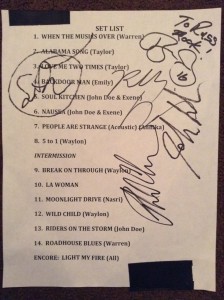 SET LIST
1. WHEN THE MUSIC'S OVER (Warren)
2. ALABAMA SONG (Taylor)
3. LOVE ME TWO TIMES (Taylor)
4. BACKDOOR MAN (Emily)
5. SOUL KITCHEN (John Doe & Exene)
6. NAUSEA (John Doe & Exene)
7. PEOPLE ARE STRANGE (Acoustic)
8. 5 to 1 (Waylon)
INTERMISSION
9. BREAK ON THROUGH (Waylon)
10. LA WOMAN
11. MOONLIGHT DRIVE (Nasri)
12. WILD CHILD (Waylon)
13. RIDERS ON THE STORM (John Doe)
14. ROADHOUSE BLUES (Warren)
ENCORE: LIGHT MY FIRE (All)
To Russ